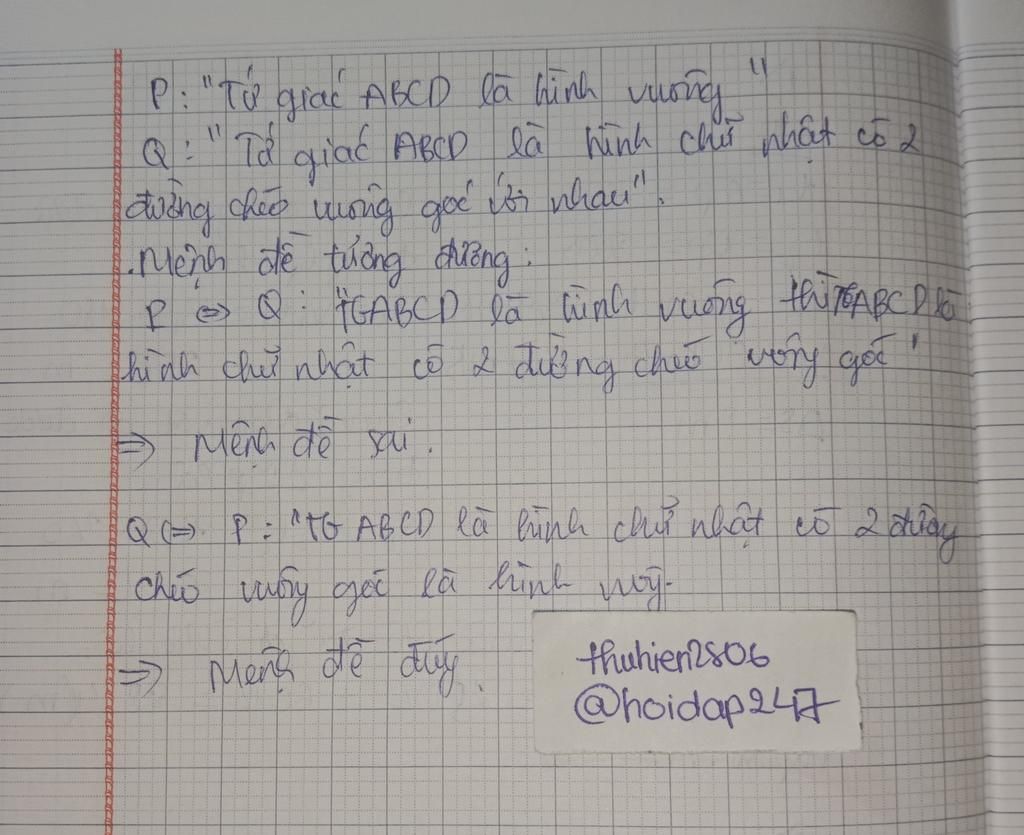 P: "Tứ giác ABCD là hình vuông"
Q: "Tứ giác ABCD là hình chữ nhật có 2
đường chéo vuông góc với nhau".
. Mệnh đề tương đương:
P ⇔ Q: "TGABCD là hình vuông thì TGABCD là
hình chữ nhật có 2 đường chéo vuông góc"
⇒ Mệnh đề sai.
Q ⇔ P: "TG ABCD là hình chữ nhật có 2 đường
chéo vuông góc là hình vuông.
⇒ Mệnh đề đúng.
thuhien2806
@hoidap247